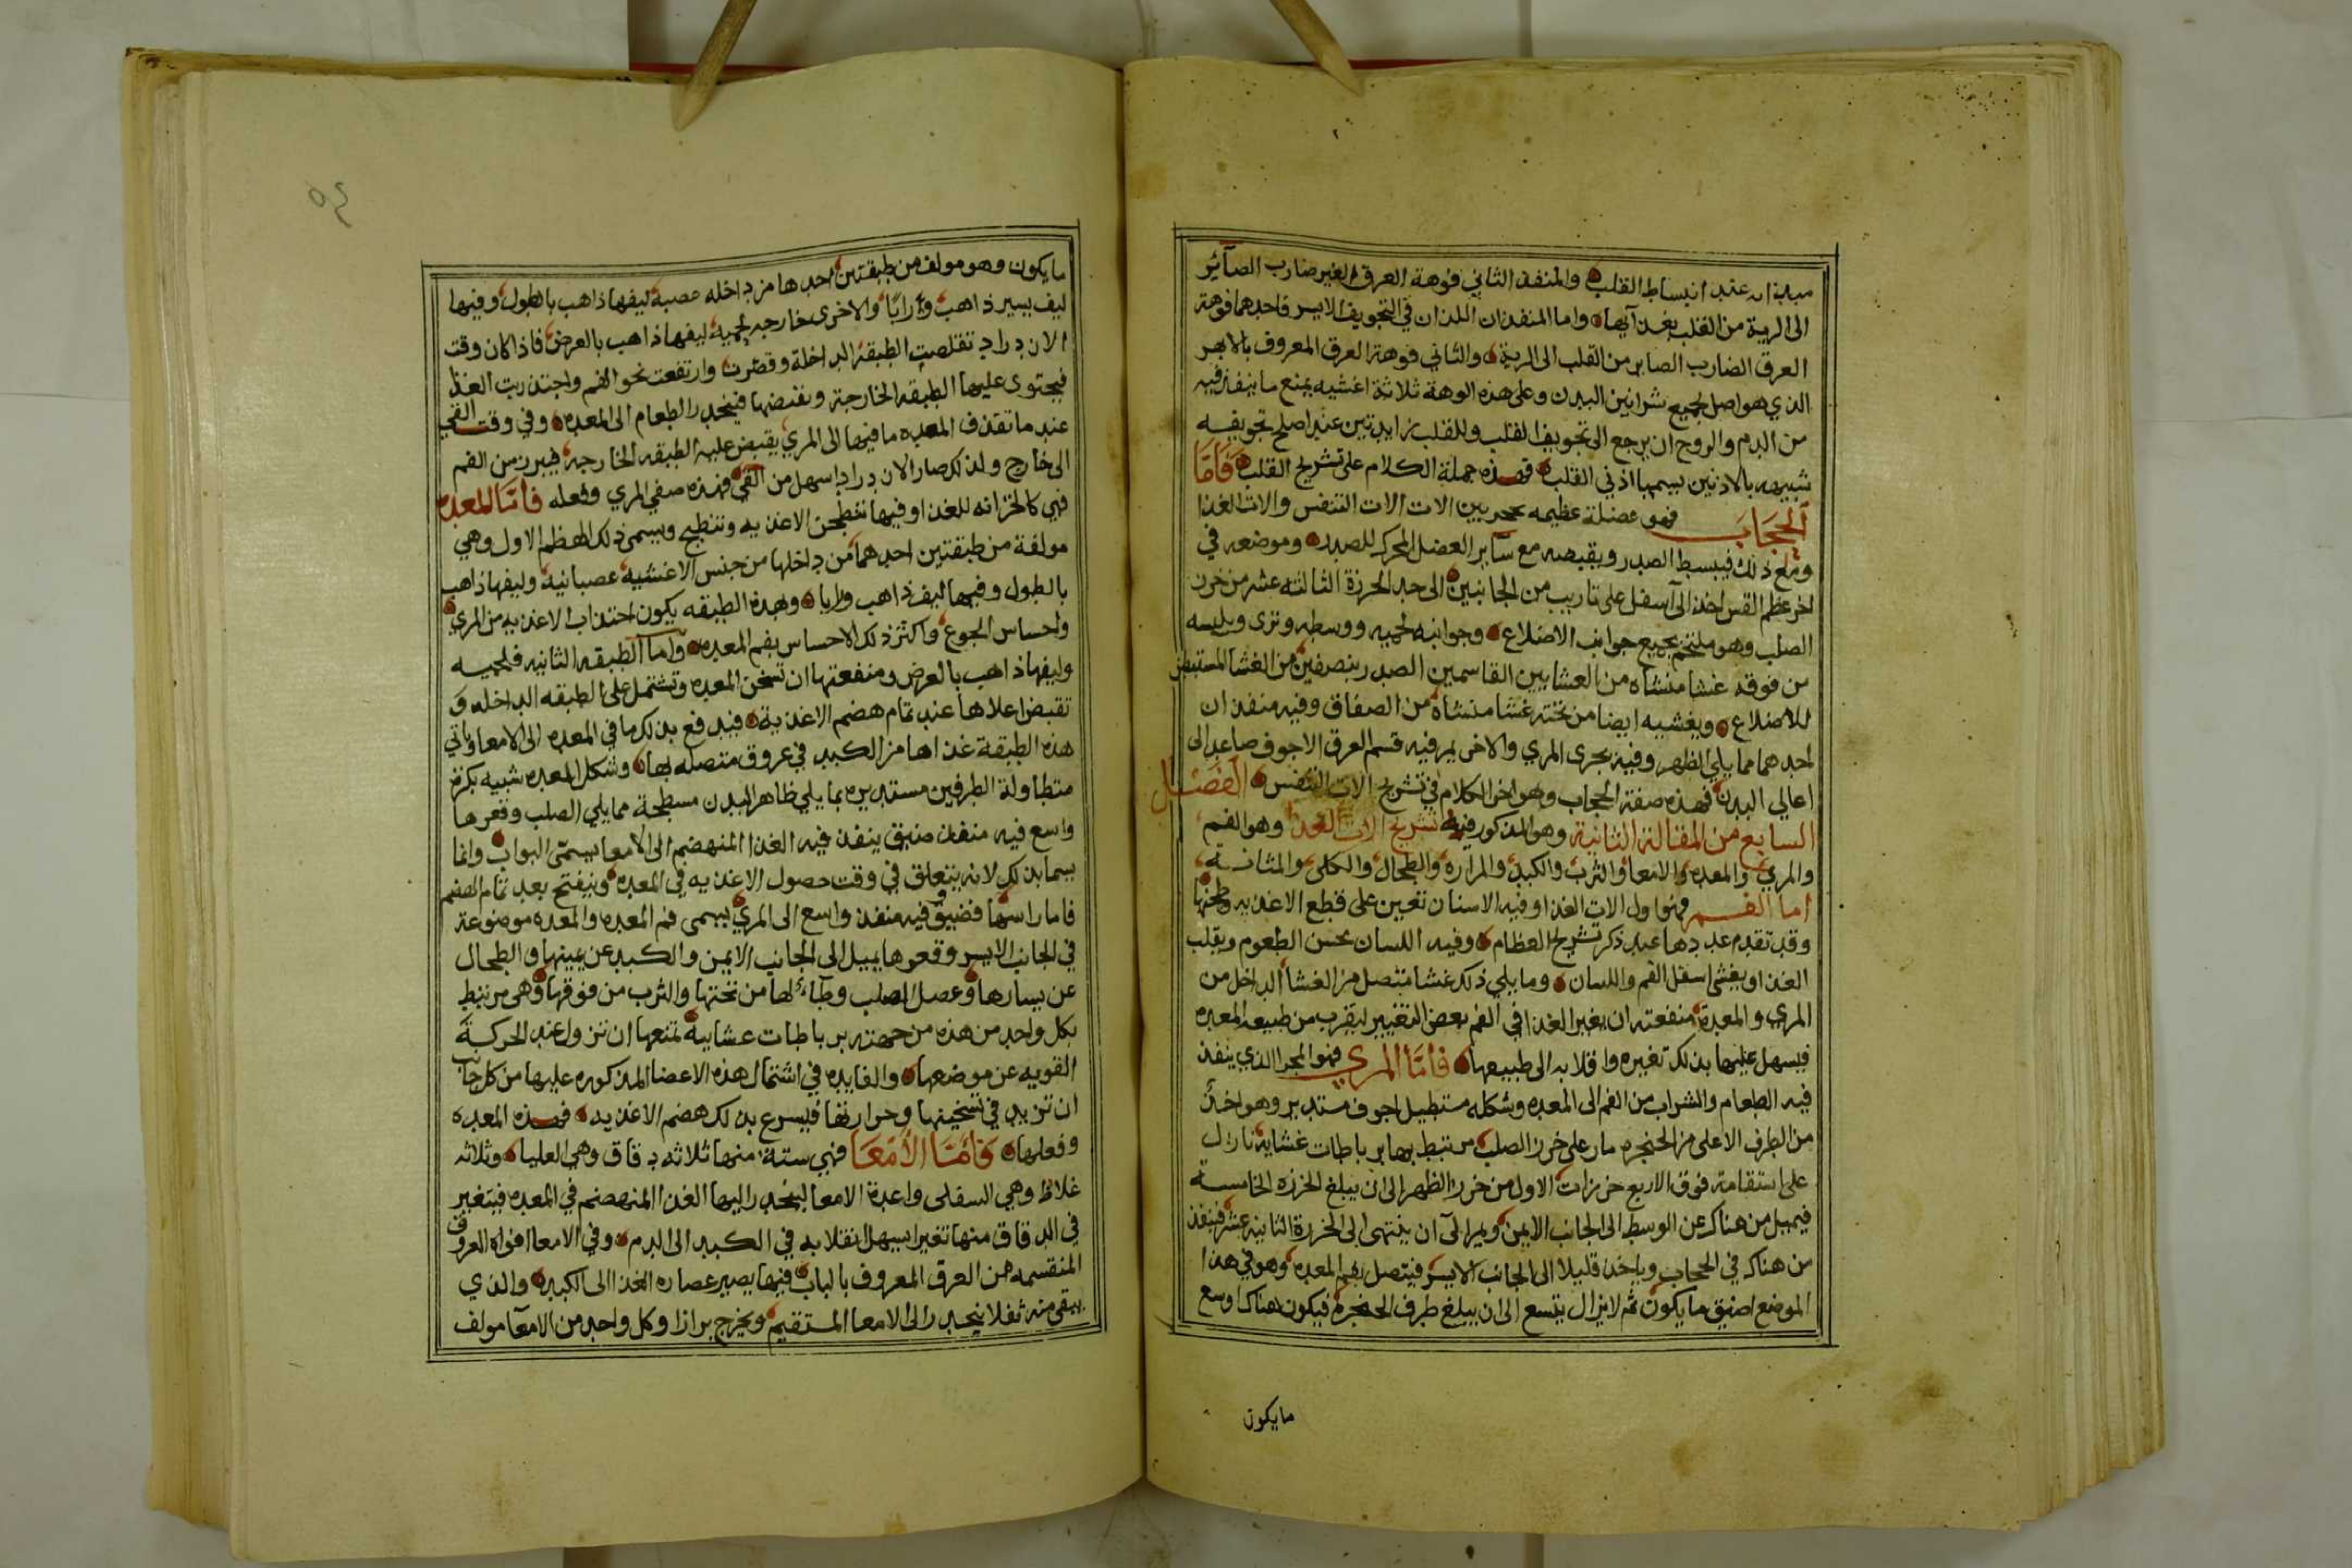 انبساط القلب والمنفذ الثاني فوهة العرق الغير ضارب الصائر
الى الرية من القلب بغذايها واما المنفذان اللذان في التجويف الايسر فاحدهما فوهة
العرق الضارب الصاير من القلب الى الرية والثاني فوهة العرق المعروف بالابهر
الذي هو اصل لجميع شرايين البدن وعلى هذه الوهة ثلاثة اغشيه يمنع ما ينفذ فيه
من الدم والروح ان يرجع الى تجويف القلب وللقلب زايدتين عند اصلح تجويفه
شبيهه بالاذنين يسميا اذني القلب فهذه جملة الكلام على تشريح القلب فَأمَّا
الحجَاب فهو عضلة عظيمه تحجر بين الات الات التنفس والات الغذا
ومع ذلك فيبسط الصدر ويقبضه مع سآير العضل المحركه للصدر وموضعه في
اخر عظم القس اخذ الى آسفل على تاريب من الجانبين الى حد الخرزة الثالثه عشر من خرز
الصلب وهو ملتحم بجميع جوانب الاضلاع وجوانبه لحميه ووسطه وتري ويلبسه
من فوقه غشا منشاه من الغشايين القاسمين الصدر بنصرفين من الغشا المستبطن
للاضلاع ويغشيه ايضا من تحته غشا منشاة من الصفاق وفيه منفذان
احدهما مما يلي الظهر وفيه مجرى المري والاخر يمر فيه قسم العرق الاجوف صاعدا الى
اعالي البدن فهذه صفة الحجاب وهو اخر الكلام في تشريح الات التنفس الفصْل
السابع من المقالة الثانية وهو المذكور فيه تشريح الات الغذا وهو الفم
والمري والمعده والامعا والثرب والكبد والمراره والطحال والكلى والمثانه
اما الفم فهو اول الات الغذا وفيه الاسنان تعين على قطع الاغذيه وطحنها
وقد تقدم عددها عند ذكر تشريح العظام وفيه اللسان يحس الطعوم ويقلب
الغذا ويغشى اسفل الفم واللسان وما يلي ذلك غشا متصل من الغشا الداخل من
المري والمعدة منفعته ان يغير الغذا في الفم بعض التغيير ليقرب من طبيعه المعده
فيسهل عليها بذلك تغيره واقلابه الى طبيعها فأمَّا المري فهو المجرا الذي ينفذ
فيه الطعام والشراب من الفم الى المعده وشكله مستطيل اجوف مستدير وهو اخذ
من الطرف الاعلى من الحنجره مار على خرز الصلب مرتبط بها برباطات غشاية نازل
على استقامة فوق الاربع خرزات الاول من خرز الظهر الى ان يبلغ الخرزه الخامسة
فيميل من هناك عن الوسط الى الجانب الايمن ويمر الى آن ينتهي الى الخرزة الثانيه عشر فينفذ
من هناك في الحجاب وياخذ قليلا الى الجانب الايسر فيتصل بفم المعده وهو في هذا
الموضع اضيق ما يكون ثم لا يزال يتسع الى ان يبلغ طرف الحنجرة فيكون هناك اوسع
ما يكون
٥٤
ما يكون وهو مولف من طبقتين احدها من داخله عصبة ليفها ذاهب بالطول وفيها
ليف يسير ذاهب ورابًا والاخرى خارجه لحمية ليفها ذاهب بالعرض فاذا كان وقت
الازدراد تقلصت الطبقة الداخلة وقصرت وارتفعت نحو الفم واجتذبت الغذا
فيحتوي عليها الطبقه الخارجة وتقبضها فينحدر الطعام الى المعده وفي وقت القي
عند ما تقذف المعده ما فيها الى المري يقبض عليه الطبقه الخارجه فيبرز من الفم
الى خارج ولذلك صار الازدراد اسهل من القي فهذه صفي المري وفعله فأمّا المعده
فهي كالخزانه للغذا وفيها تنطحن الاغذيه وتنطبخ ويسمى ذلك الهظم الاول وهي
مولفة من طبقتين احدهما من داخلها من جنس الاغشيه عصبانيه وليفها ذاهب
بالطول وفيها ليف ذاهب ورابا وبهذه الطبقه يكون اجتذاب الاغذيه من المري
واحساس الجوع واكثر ذلك الاحساس بفم المعده وآما الطبقه الثانيه فلحميه
وليفها ذاهب بالعرض ومنفعتها ان تسخن المعده وتشتمل على الطبقه الداخله و
تقبض اعلاها عند تمام هضم الاغذية فيدفع بذلك ما في المعده الى الامعا وياتي
هذه الطبقة غذاها من الكبد في عروق متصله بها وشكل المعده شبيه بكرة
متطاولة الطرفين مستديره مما يلي ظاهر البدن مسطحة مما يلي الصلب وقعرها
واسع فيه منفذ ضيق ينفذ فيه الغذا المنهضم الى الامعا يسمّى البواب وانما
يسما بذلك لانه يتعلق في وقت حصول الاغذيه في المعده وينفتح بعد تمام الهضم
فاما راسها فضيق فيه منفذ واسع الى المري يسمى فم المعده والمعده موضوعة
في الجانب الايسر وقعرها يميل الى الجانب الايمن والكبد عن يمينها والطحال
عن يسارها وعضل الصلب وطآءً لها من تحتها والثرب من فوقها وهي مرتبط
بكل واحد من هذه من جهته برباطات غشايية تمنعها ان تزول عند الحركة
القويه عن موضعها والفايده في اشتمال هذه الاعضا المذكوره عليها من كل جانب
ان تزيد في تسخينها وحرارتها فيسرع بذلك هضم الاغذيه فهذه المعده
وفعلها وَأمَّا الأَمْعَا فهي ستة منها ثلاثه دقاق وهي العليا وثلاثه
غلاظ وهي السفلى واعدة الامعا لينحدر اليها الغذا المنهضم في المعده فيتغير
في الدقاق منها تغيرا يسهل انقلابه في الكبد الى الدم وفي الامعا افواه العروق
المنقسمه من العرق المعروف بالباب فيها يصير عصاره الغذا الى الكبد والذي
يبقى منه ثفلا ينحدر الى الامعا المستقيم ويخرج برازا وكل واحد من الامعآ مولف